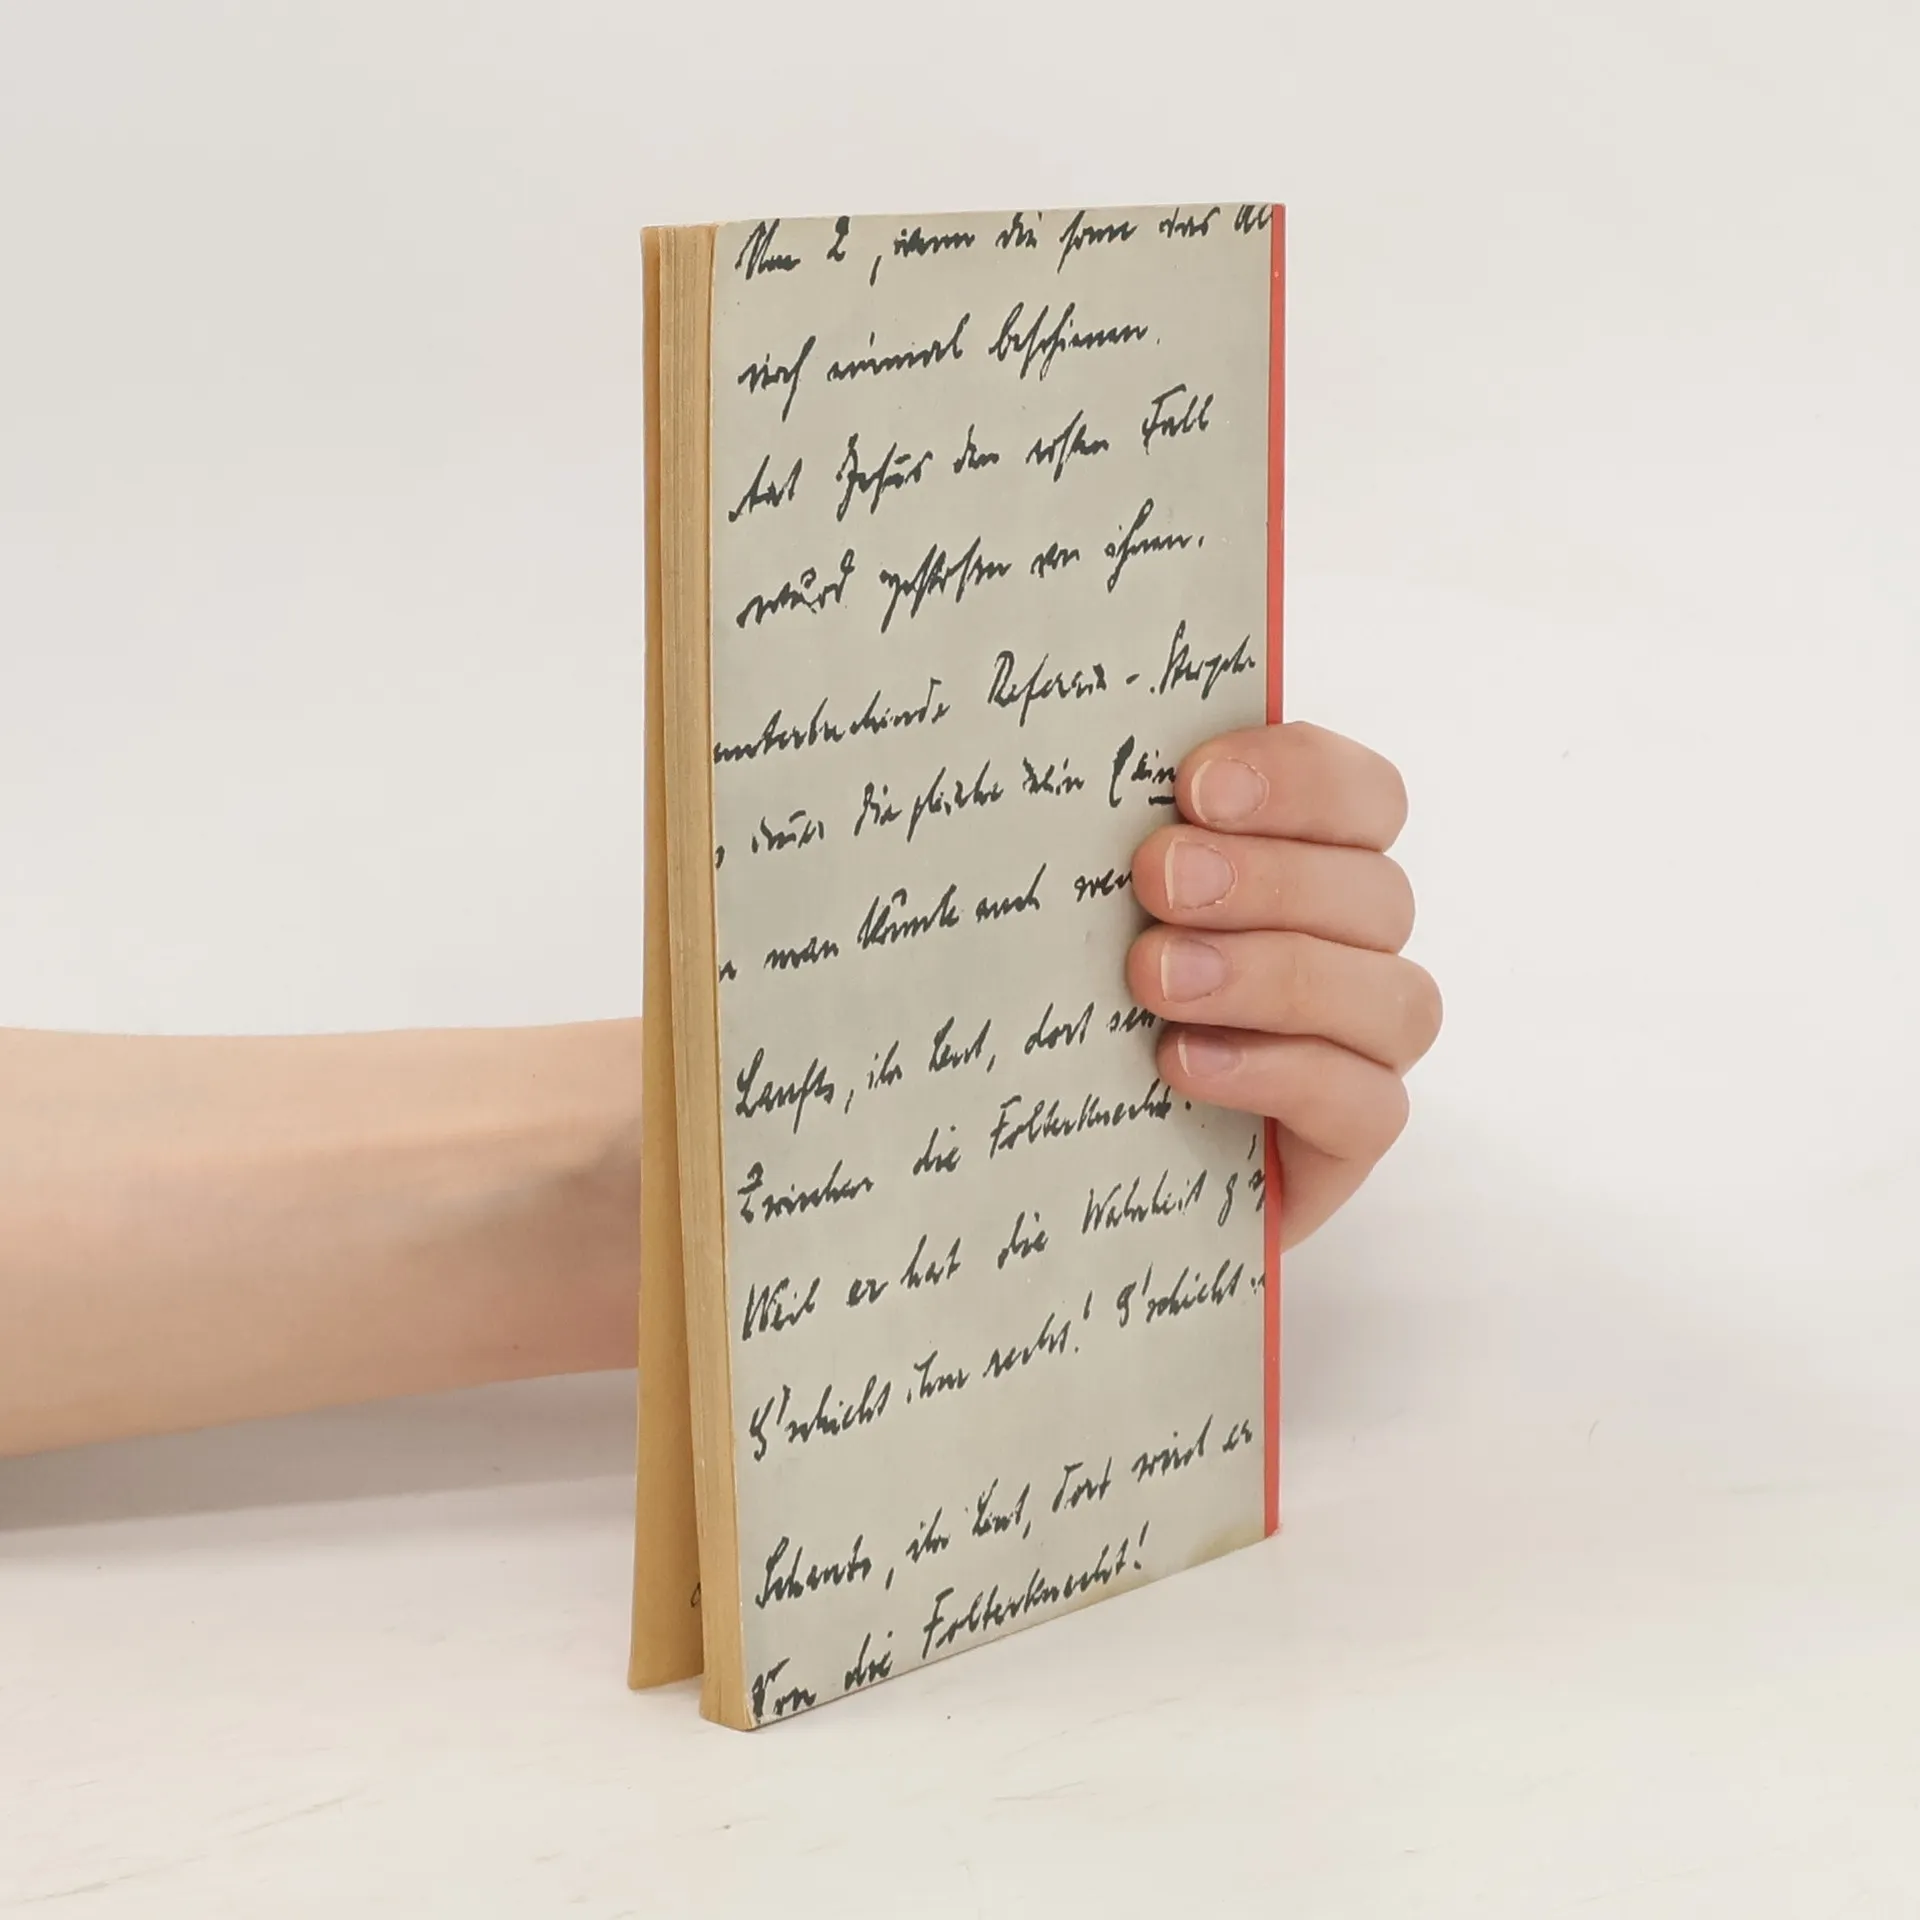 Um 2, wenn die sonn das
noch einmal beschienen.
tat Jesus den ersten Fall
wurd gestosen von ihnen.
unterbrechende Refrain -
die gleiche sein
man könnte auch
Lauft, ihr Leut, dort
Zwischen die Folterknecht!
Weil er hat die Wahrheit
G'schicht ihm recht! G'schicht
Schauts, ihr Leut, dort wird er
Von die Folterknecht!